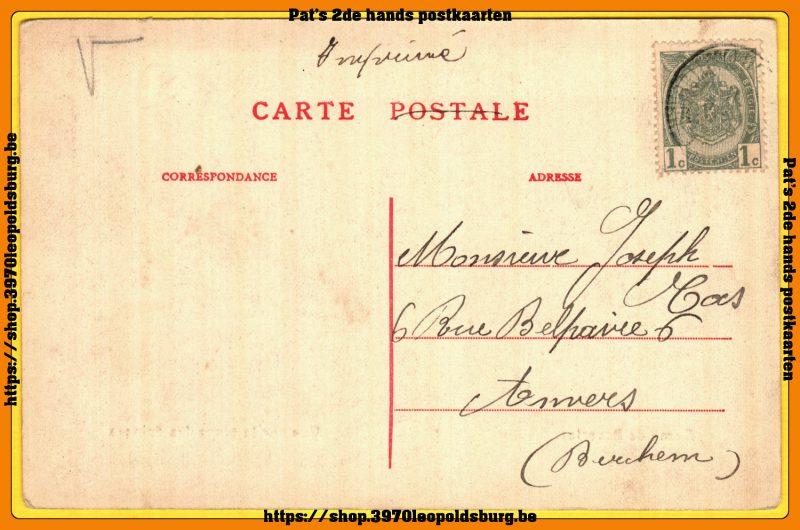 Pat's 2de hands postkaarten
Imprimé
CARTE POSTALE
1c 1c
CORRESPONDANCE
ADRESSE
Monsieur Joseph
Cas
6 Rue Belpaire 6
Anvers
(Berchem)
https://shop.3970leopoldsburg.be
Pat's 2de hands postkaarten
https://shop.3970leopoldsburg.be